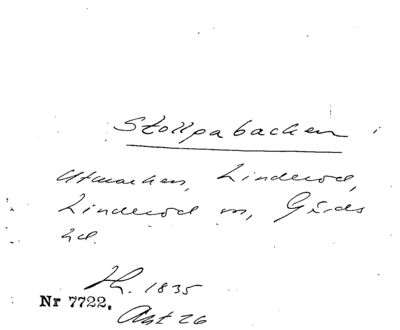 Stollpabacken
Utmarken, Linderöd,
Linderöd sn, Gärds
hd.
Lh. 1835
Nr 7722.
Akt 26